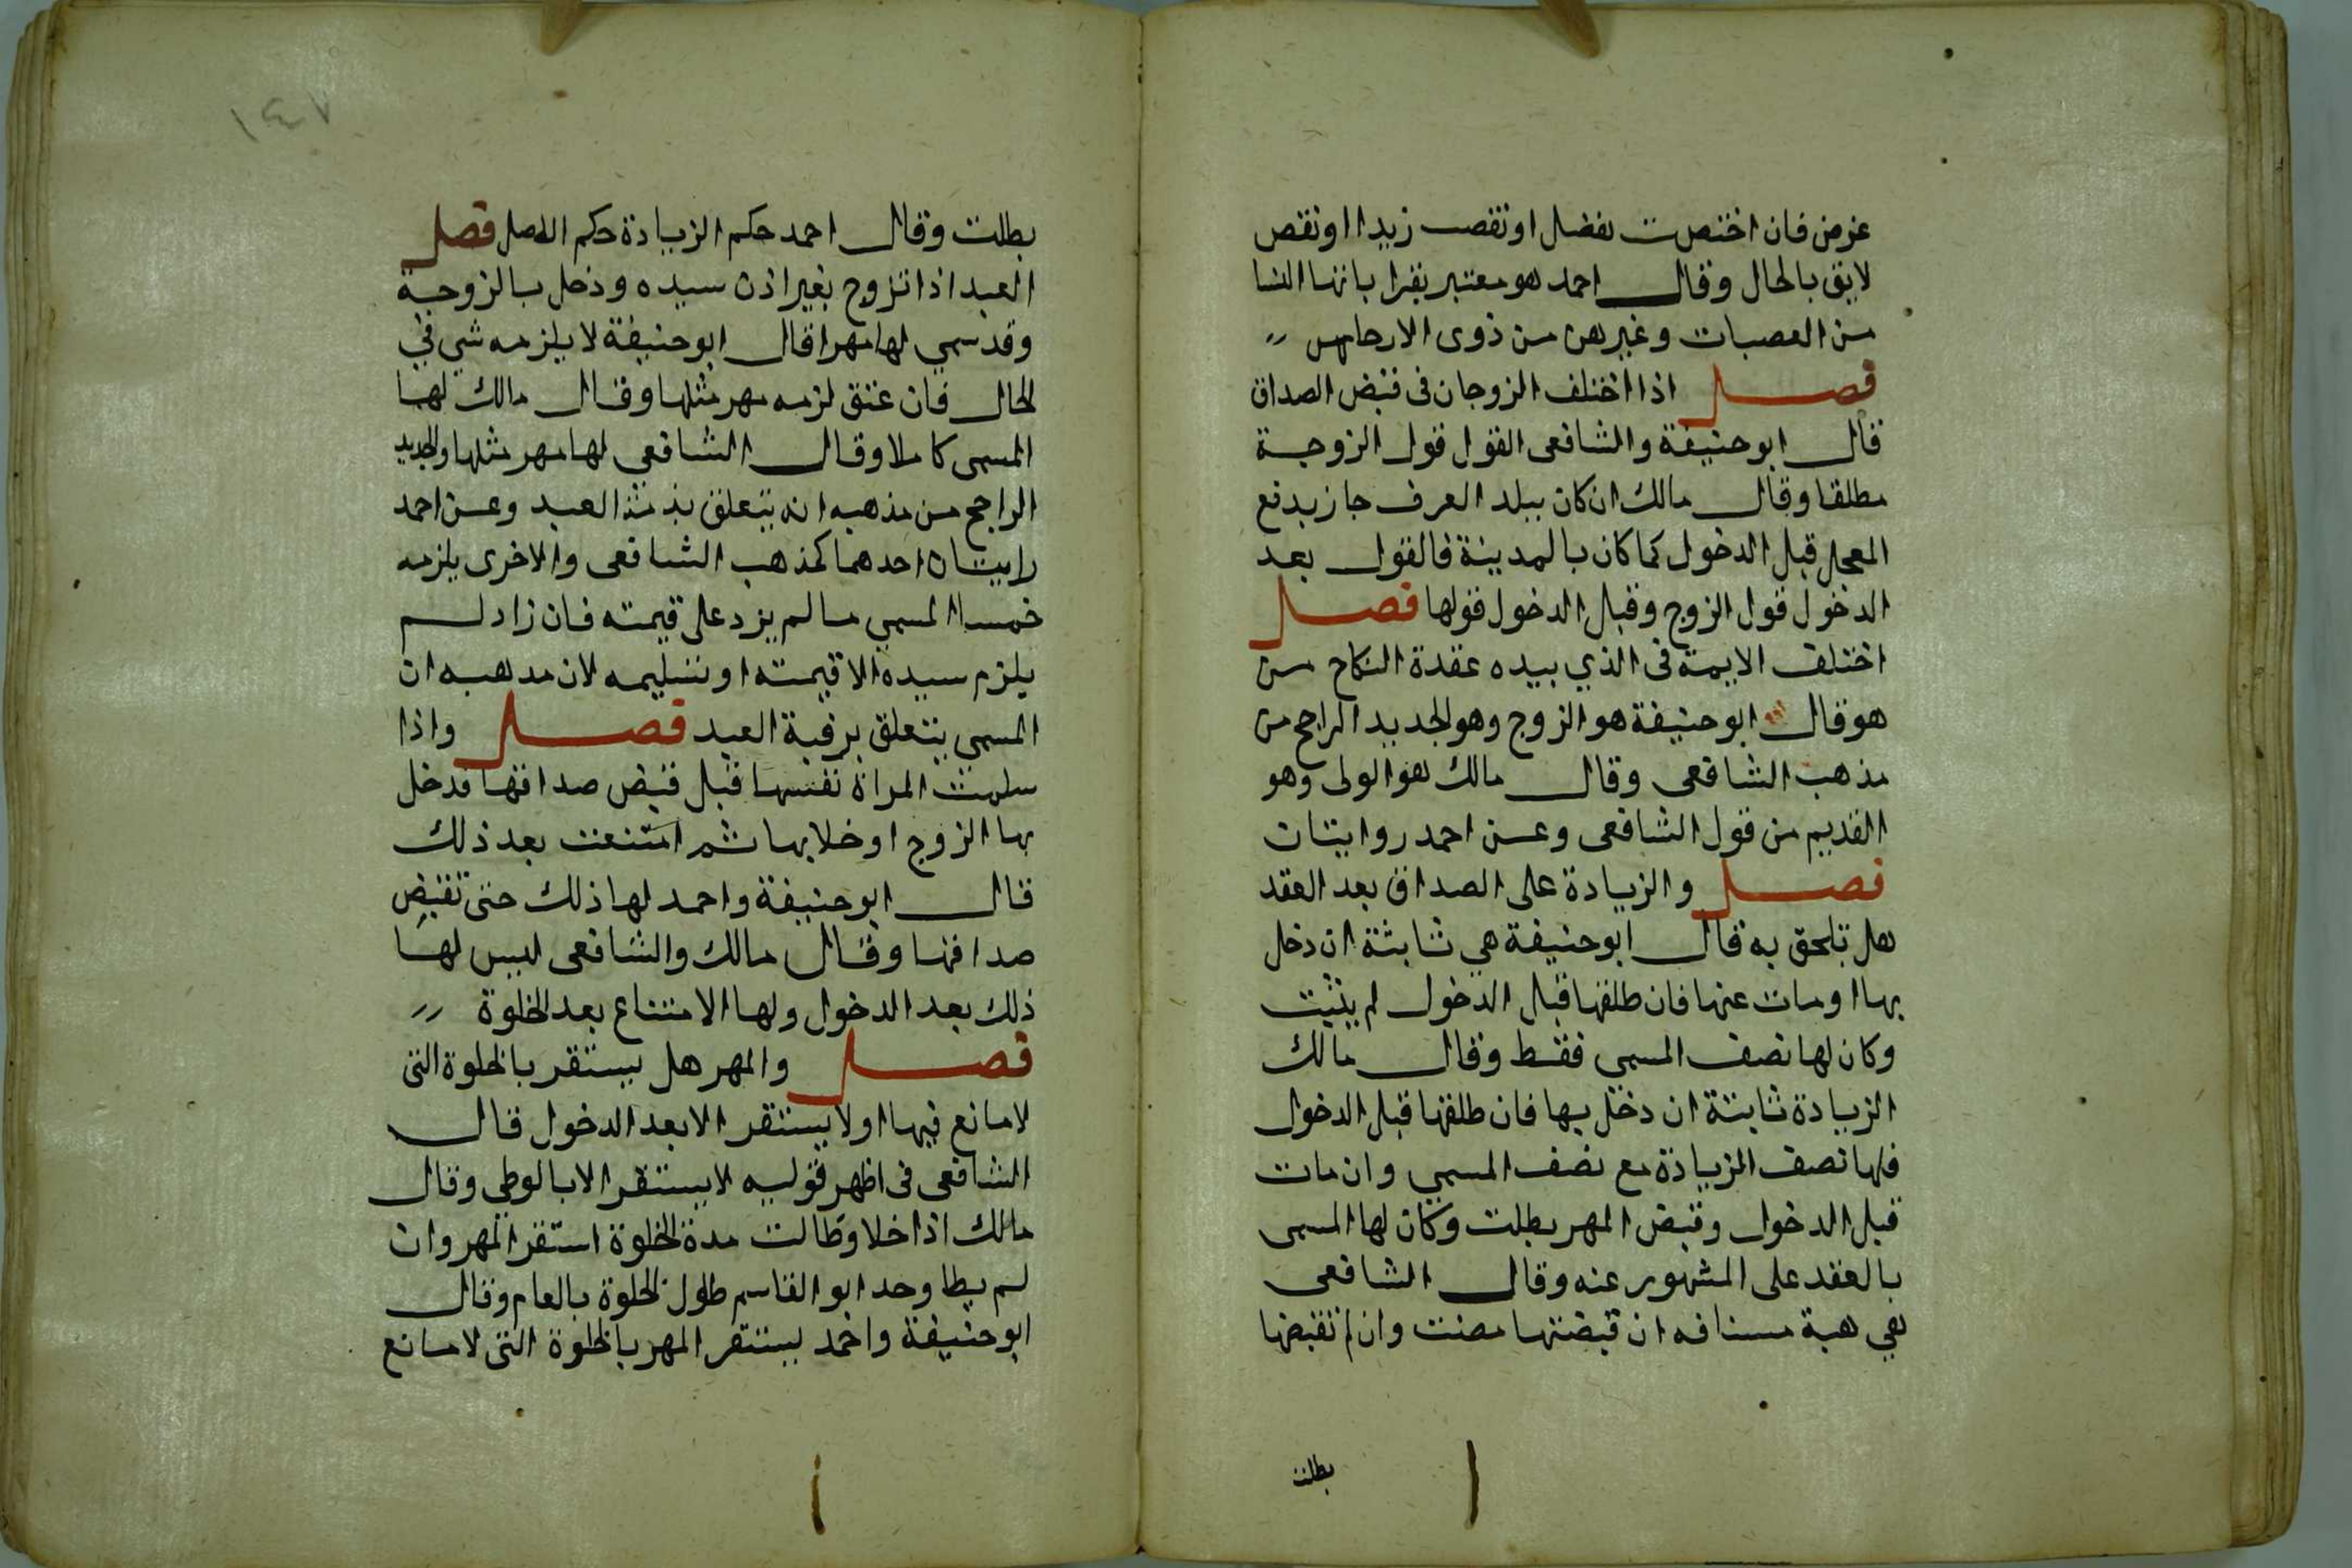 غرض فان اختصت بفضل او نقصت زيدا او نقص
لايق بالحال وقال احمد هو معتبر بقراباتها النسا
من العصبات وغيرهن من ذوى الارحام
فصل اذا اختلف الزوجان فى قبض الصداق
قال ابو حنيفة والشافعى القول قول الزوجة
مطلقا وقال مالك ان كان ببلد العرف جاز بدفع
المعجل قبل الدخول كما كان بالمدينة فالقول بعد
الدخول قول الزوج وقبل الدخول قولها فصل
اختلف الايمة فى الذي بيده عقدة النكاح من
هو قال ابو حنيفة هو الزوج وهو الجديد الراجح من
مذهب الشافعى وقال مالك هو الولى وهو
القديم من قول الشافعى وعن احمد روايتان
فصل والزيادة على الصداق بعد العقد
هل تلحق به قال ابو حنيفة هي ثابثة ان دخل
بها او مات عنها فان طلقها قبل الدخول لم يثبت
وكان لها نصف المسمى فقط وقال مالك
الزيادة ثابتة ان دخل بها فان طلقها قبل الدخول
فلها نصف الزيادة مع نصف المسمي وان مات
قبل الدخول وقبض المهر بطلت وكان لها المسمى
بالعقد على المشهور عنه وقال الشافعى
هي هبة مستافه ان قبضتها مضت وان لم تقبضها
بطلت
١٤٧
بطلت وقال احمد حكم الزيادة حكم الاصل فصل
العبد اذا تزوج بغير اذن سيده ودخل بالزوجة
وقد سمي لها مهرا قال ابو حنيفة لا يلزمه شي في
الحال فان عتق لزمه مهر مثلها وقال مالك لها
المسمى كاملا وقال الشافعي لها مهر مثلها والجديد
الراجح من مذهبه انه يتعلق بذمة العبد وعن احمد
رايتان احدهما كمذهب الشافعى والاخرى يلزمه
خمسا المسمي ما لم يزد على قيمته فان زاد لم
يلزم سيده الا قيمته او تسليمه لان مدهبه ان
المسمي يتعلق برقبة العبد فصل واذا
سلمت المراة نفسها قبل قبض صداقها فدخل
بها الزوج او خلا بها ثم امتنعت بعد ذلك
قال ابو حنيفة واحمد لها ذلك حتى تقبض
صداقها وقال مالك والشافعى ليس لها
ذلك بعد الدخول ولها الامتناع بعد الخلوة
فصل والمهر هل يستقر بالخلوة التى
لا مانع فيها او لا يستقر الا بعد الدخول قال
الشافعى فى اظهر قوليه لا يستقر الا بالوطي وقال
مالك اذا خلا وطالت مدة الخلوة استقر المهر وان
لم يطا وحد ابو القاسم طول الخلوة بالعام وقال
ابو حنيفة واحمد يستقر المهر بالخلوة التى لا مانع